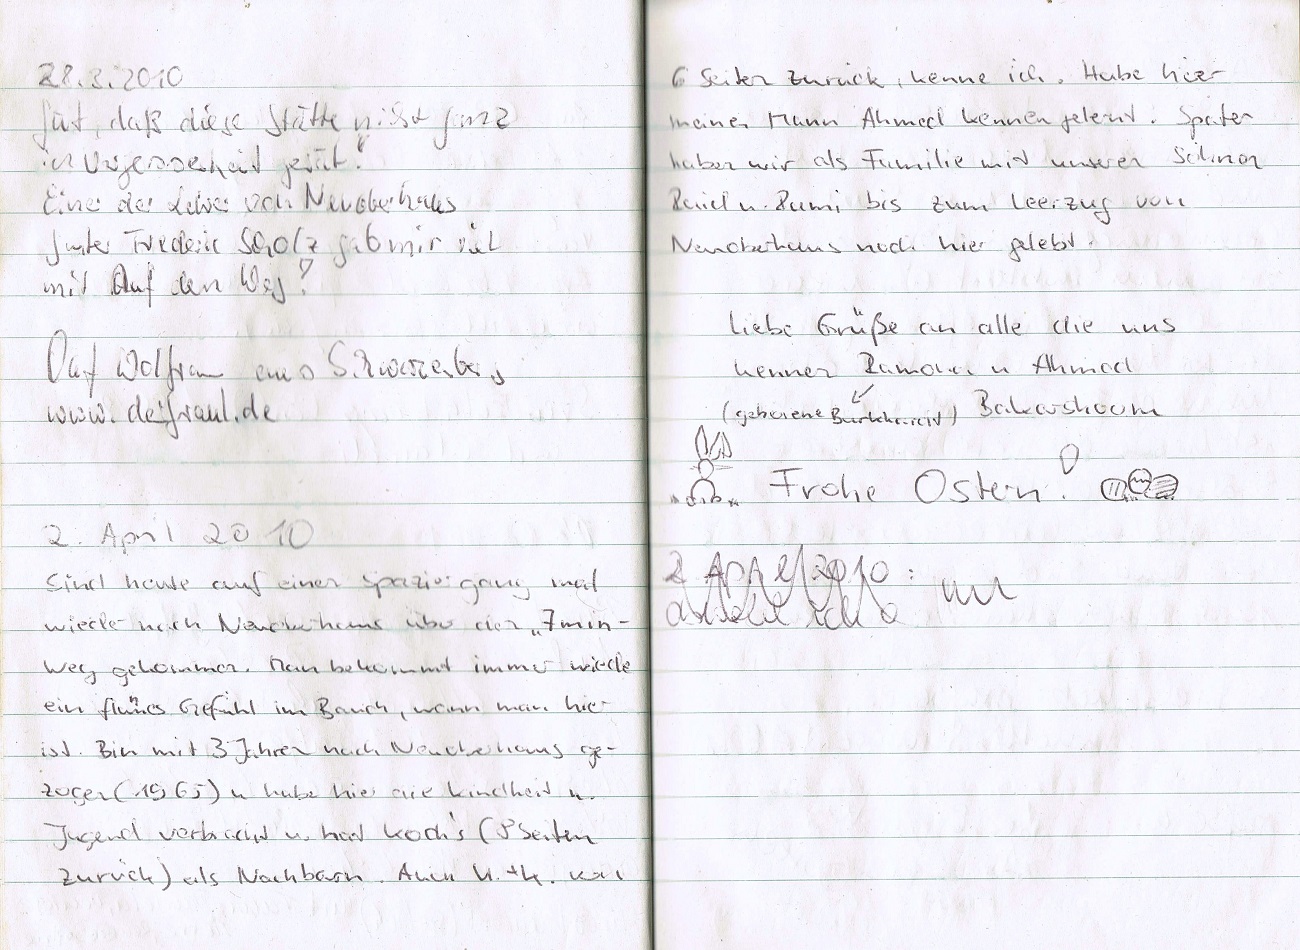 28.3.2010
Gut, daß diese Stätte nicht ganz
in Vergessenheit gerät!
Eine der Lehrer von Neuoberhaus
Frederic Scholz gab mir viel
mit Auf den Weg!
Wolfram aus Schwarzenberg
www.deifraul.de
2. April 2010
Sind heute auf einen Spaziergang mal
wieder nach Neuoberhaus über den „7min-
Weg gekommen. Man bekommt immer wieder
ein Gefühl im Bauch, wenn man hier
ist. Bin mit 3 Jahren nach Neuoberhaus ge-
zogen (1965) u habe hier die Kindheit u.
Jugend verbracht u. hat Koch's (Seiten
zurück) als Nachbarn. Auch
6 Seiten zurück, kenne ich. Habe hier
meinen Mann Ahmed kennengelernt. Später
haben wir als Familie mit unseren Söhnen
u. Rami bis zum Leerzug von
Neuoberhaus noch hier gelebt.
Liebe Grüße an alle die uns
kennen Ramona u Ahmed
(geborene
Frohe Ostern!
2 April 2010: